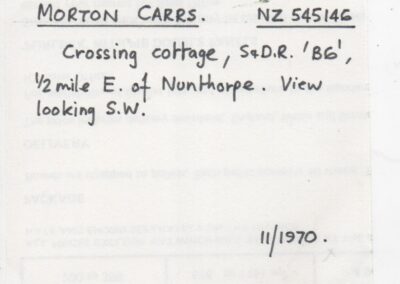 MORTON CARRS. NZ 545146
Crossing cottage, S&D.R. 'B6',
1/2 mile E. of Nunthorpe. View
looking S.W.
11/1970.